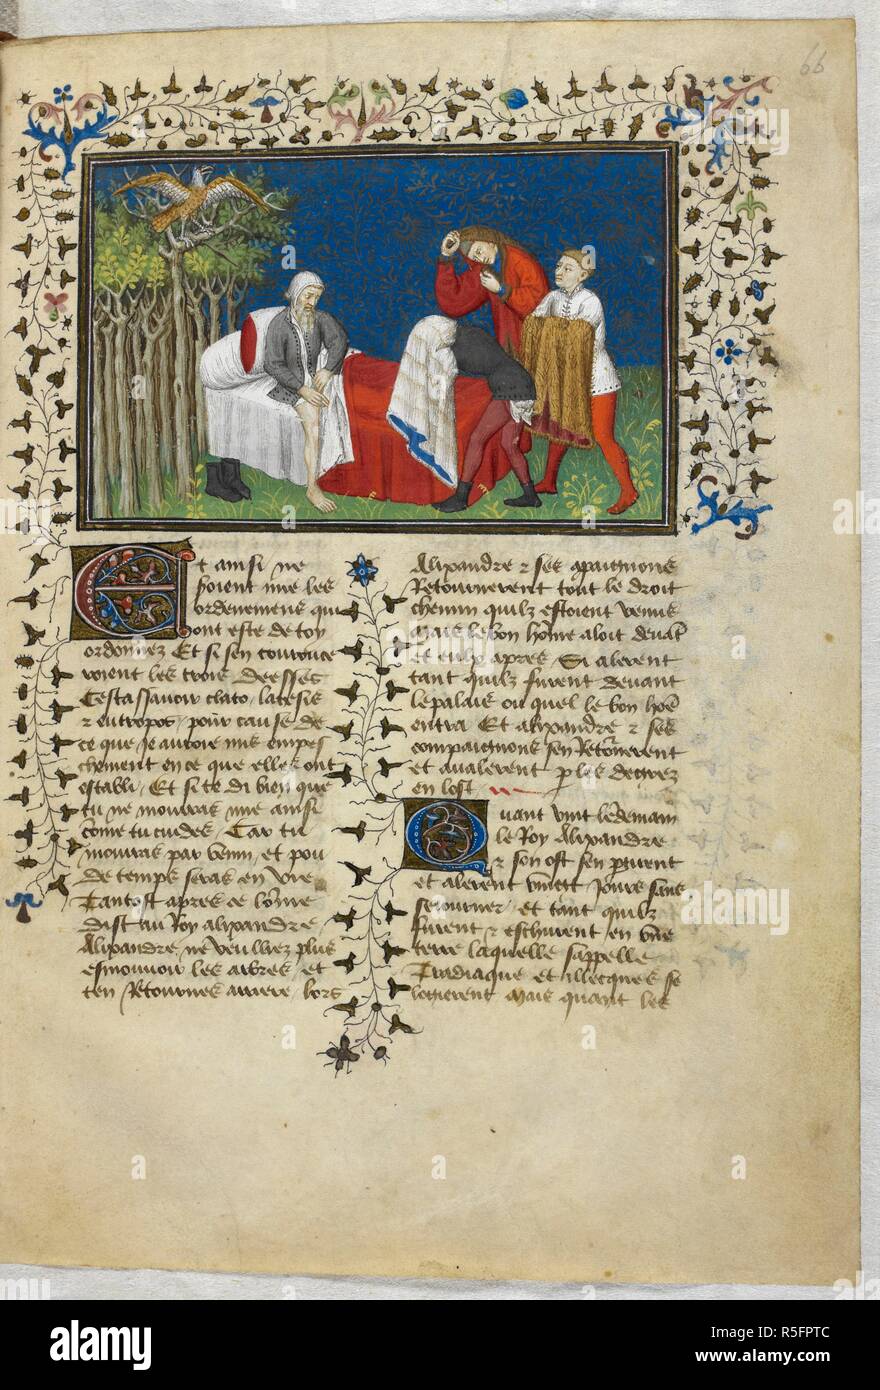 66
Et ainsi ne
soient mie les
ordenemens qui
ont este de toy
ordonnez Et si sen courouce
roient les trois deesses
Cestassavoir clato, latesis
& entropos, pour cause de
ce que je auroie mis empes
chement en ce que elles ont
establi, Et si te di bien que
tu ne mourras mie ainsi
come tu cuides, Car tu
mourras par venin, et pou
de temps seras en vie
Tantost apres ce lome
dist au Roy alixandre
Alixandre ne veulliez plus
esmouvoir les arbres, et
ten retournes arriere, lors
Alixandre & ses compaignons
Retournerent tout le droit
chemin quilz estoient venus
Mais le bon home aloit devat
et eulx apres, Si alerent
tant quilz furent devant
le palais ou quel le bon hoe
entra Et alixandre & ses
compaignons sen retornerent
et avalerent p les degrez
en lost
Quant vint lendemain
le Roy Alixandre
& son ost sen partirent
et alerent vint jours sans
sejourner, et tant quilz
furent & eschurent en une
terre laquelle sappelle
Tradiaque et illecques se
logierent Mais quant les
alamy stock photo
R5FPTC
www.alamy.com